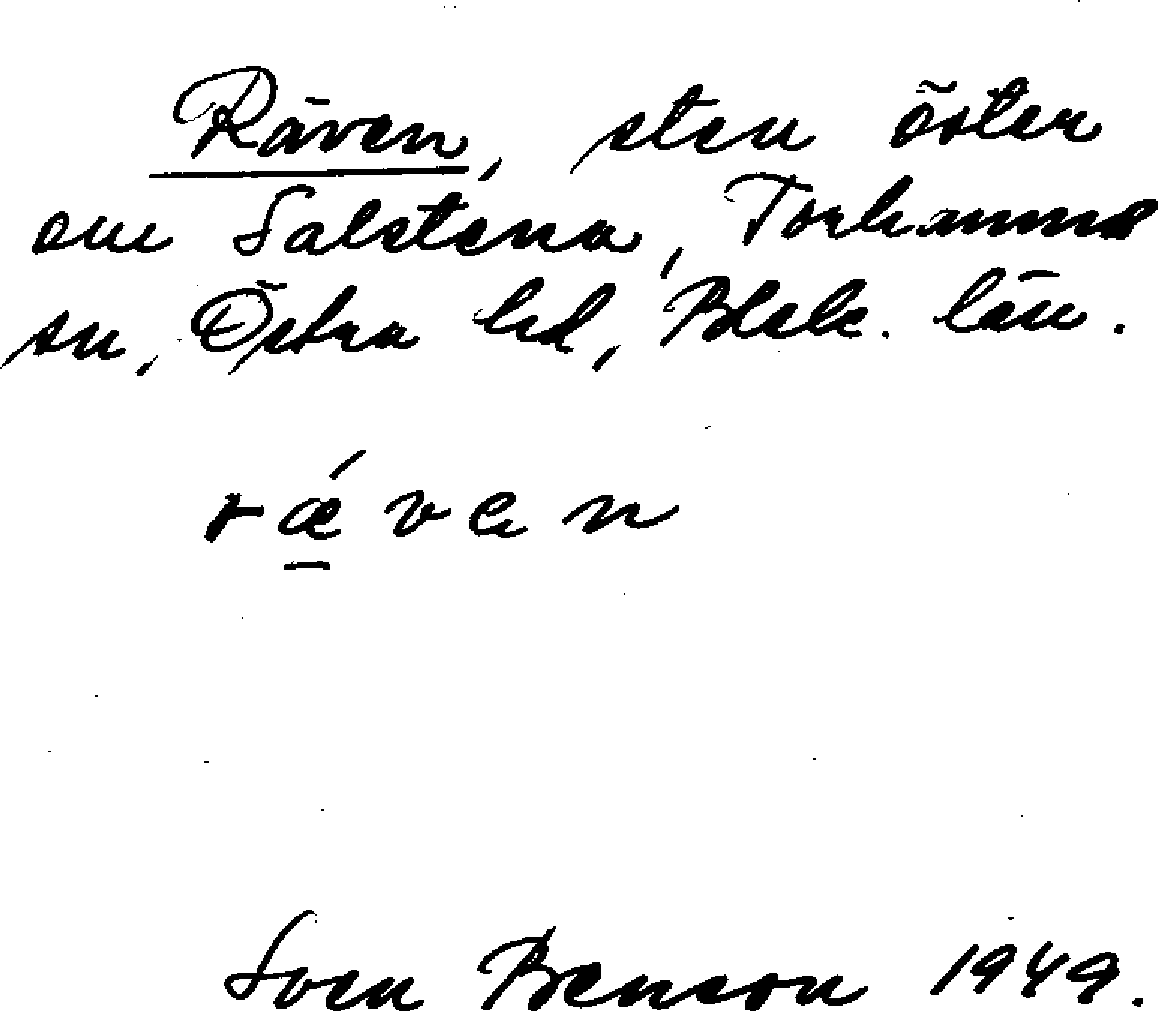 Räven, sten öster
om Salstena, Torhamns
sn, Östra hd, Blek. län.
rǽven
Sven Benson 1949.